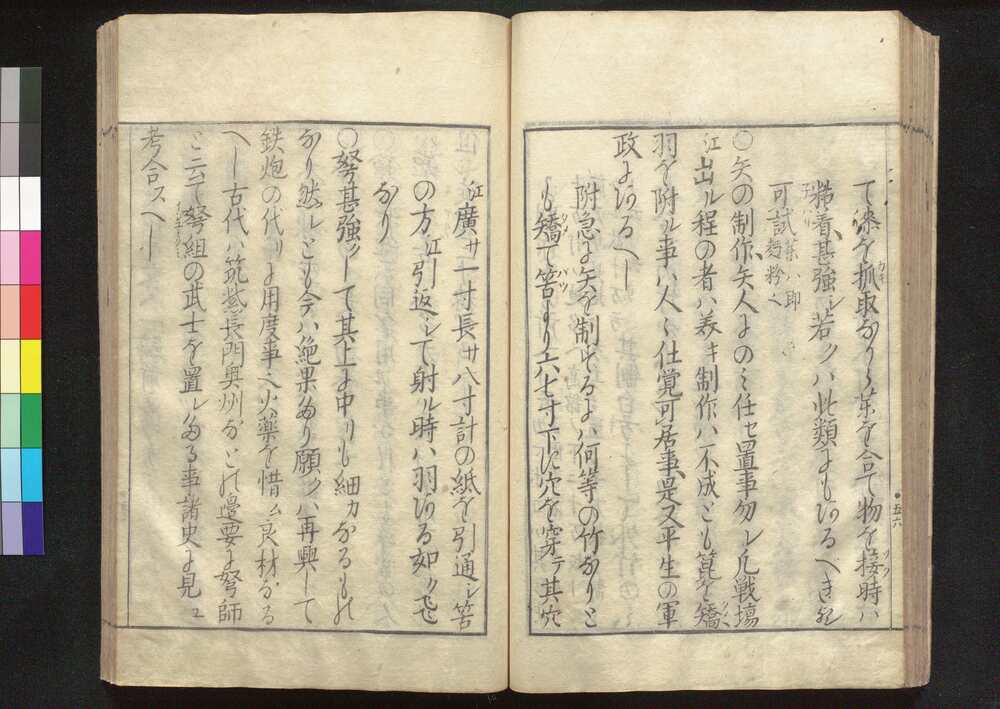 て渋を抓取ながら葉を合て物を接時ハ
粘着甚強シ若クハ此類にもあるべき欤
可試 葉ハ即麪粉也
○矢の制作矢人にのミ任セ置事勿レ凡戦場
江出ル程の者ハ美キ制作ハ不成とも箆を矯
羽を附ル事ハ人々仕覚可居事是又平生の軍
政にあるへし
附急に矢を制するにハ何等の竹なりと
も矯て筈より六七寸下に穴を穿テ其穴
江廣サ一寸長サ八寸計の紙を引通シ筈
の方江引返シて射ル時ハ羽ある如クに飛
なり
○弩甚強クして其上に中りも細カなるもの
なり然ルとも今ハ絶果たり願クハ再興して
鉄炮の代りに用度事也火薬を惜ム良材なる
へし古代ハ筑紫長門奥州などの邊要に弩師
と云て弩組の武士を置レたる事諸史に見ユ
考合スへし
五六